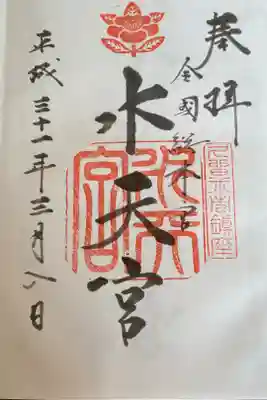 奉拝
全國総本宮
水天宮
平成三十一年三月八日